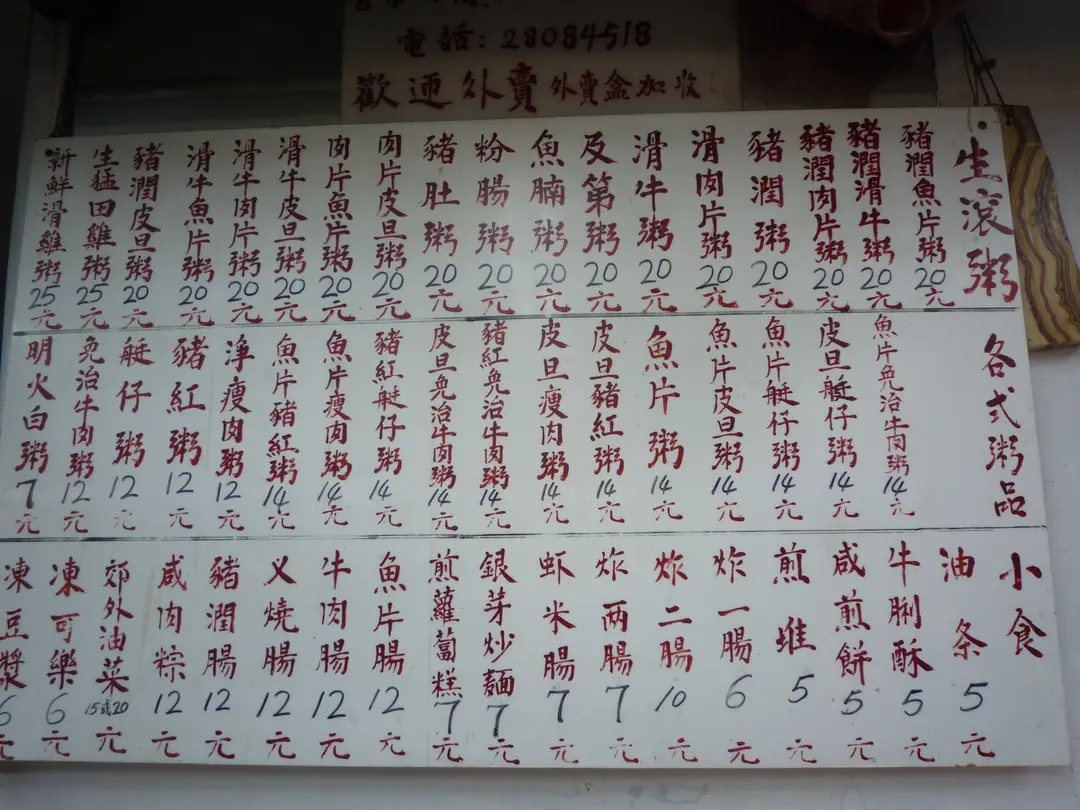 電話：28084518
歡迎外賣 外賣盒加收
生滾粥
豬潤魚片粥20元
豬潤滑牛粥20元
豬潤肉片粥20元
豬潤粥20元
滑肉片粥20元
滑牛粥20元
及第粥20元
魚腩粥20元
粉腸粥20元
豬肚粥20元
肉片皮旦粥20元
肉片魚片粥20元
滑牛皮旦粥20元
滑牛肉片粥20元
滑牛魚片粥20元
豬潤皮旦粥20元
生猛田雞粥25元
新鮮滑雞粥25元
各式粥品
魚片免治牛肉粥14元
皮旦艇仔粥14元
魚片艇仔粥14元
魚片皮旦粥14元
魚片粥14元
皮旦豬紅粥14元
皮旦瘦肉粥14元
豬紅免治牛肉粥14元
皮旦免治牛肉粥14元
豬紅艇仔粥14元
魚片瘦肉粥14元
魚片豬紅粥14元
淨瘦肉粥12元
豬紅粥12元
艇仔粥12元
免治牛肉粥12元
明火白粥7元
小食
油条5元
牛脷酥5元
咸煎餅5元
煎堆5元
炸一腸6元
炸二腸10元
炸两腸7元
虾米腸7元
銀芽炒麵7元
煎蘿蔔糕7元
魚片腸12元
牛肉腸12元
义燒腸12元
豬潤腸12元
咸肉粽12元
郊外油菜15式20元
凍可樂6元
凍豆漿6元